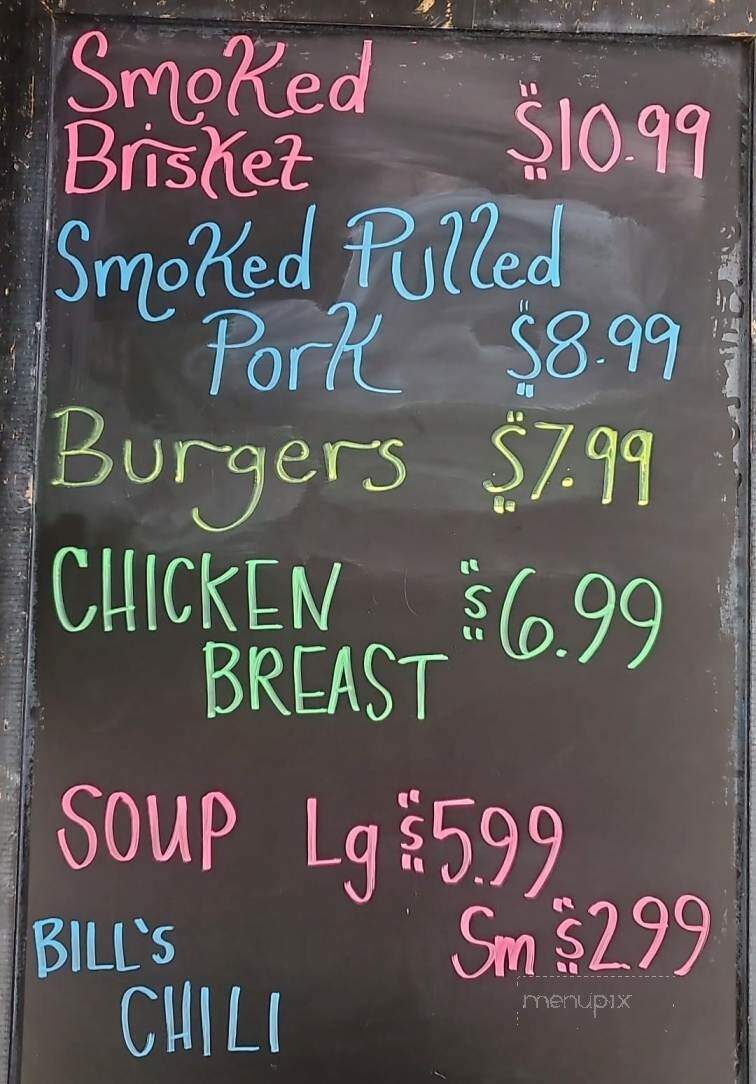 Smoked
Brisket $10.99
Smoked Pulled
Pork $8.99
Burgers $7.99
CHICKEN $6.99
BREAST
SOUP Lg $5.99
Sm $2.99
BILL'S
CHILI
menupix